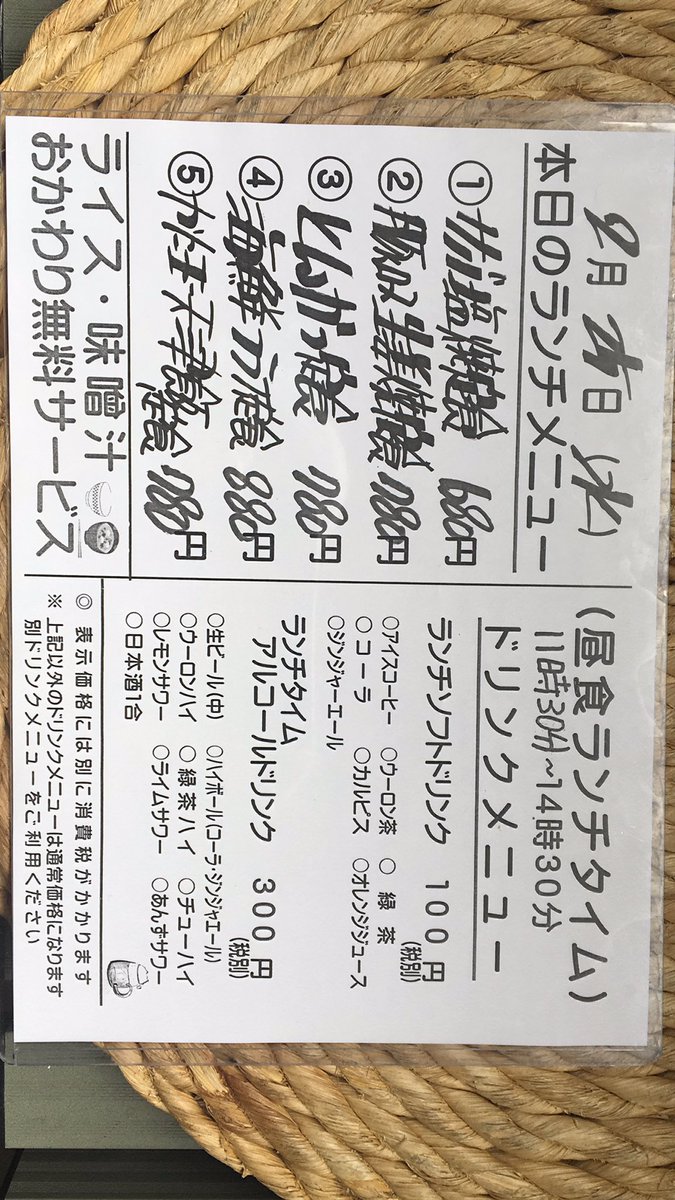 9月25日(水)
本日のランチメニュー
①サバ塩焼定食 680円
② 生姜焼定食 780円
③とんかつ定食 780円
④海鮮 定食 880円
⑤ 定食 780円
ライス・味噌汁
おかわり無料サービス
(昼食ランチタイム)
11時30分~14時30分
ドリンクメニュー
ランチソフトドリンク 100円
(税別)
○アイスコーヒー ○ウーロン茶 ○緑茶
○コーラ ○カルピス ○オレンジジュース
○ジンジャーエール
ランチタイム
アルコールドリンク 300円
(税別)
○生ビール(中) ○ハイボール(コーラ・ジンジャエール)
○ウーロンハイ ○緑茶ハイ ○チューハイ
○レモンサワー ○ライムサワー ○あんずサワー
○日本酒1合
◎ 表示価格には別に消費税がかかります
※ 上記以外のドリンクメニューは通常価格になります
別ドリンクメニューをご利用ください